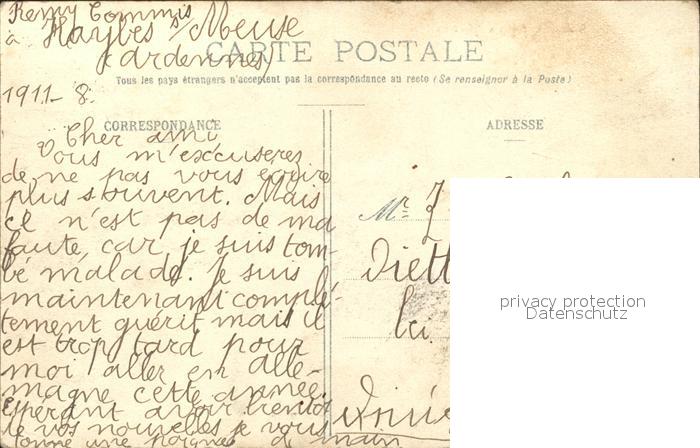 Remy Commis
à Haybes s/ Meuse
(ardennes)
CARTE POSTALE
Tous les pays étrangers n'acceptent pas la correspondance au recto (Se renseigner à la Poste)
1911 - 8.
CORRESPONDANCE
Cher ami
Vous m'excuserez
de ne pas vous ecrire
plus souvent. Mais
ce n'est pas de ma
faute, car je suis tom-
bé malade. Je suis
maintenant complé-
tement guérit mais il
est trop tard pour
moi aller en alle-
magne cette année.
Espérant avoir bientôt
de vos nouvelles je vous
donne une poignée de main
ADRESSE
Mr
privacy protection
Datenschutz